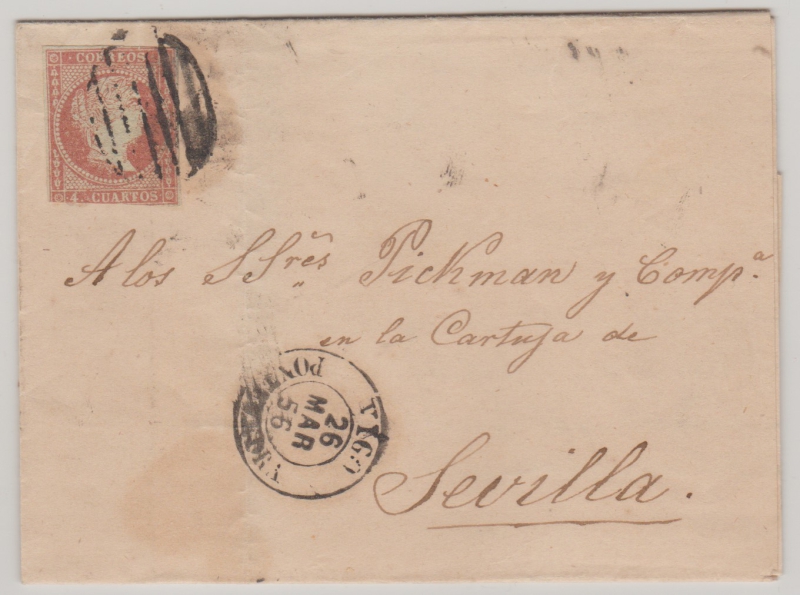 CORREOS
4. CUARTOS
A los SSrēs Pickman y Compª
en la Cartuja de
VIGO
26
MAR
56
Sevilla.